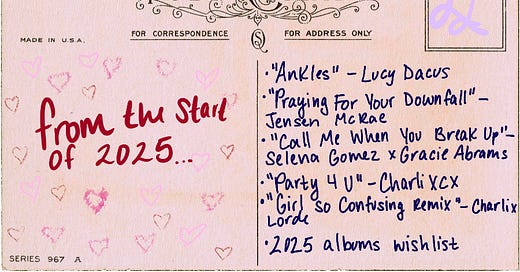 MADE IN U.S.A.
FOR CORRESPONDENCE
FOR ADDRESS ONLY
from the start
of 2025...
• "Ankles" - Lucy Dacus
• "Praying For Your Downfall" -
Jensen McRae
• "Call Me When You Break Up" -
Selena Gomez x Gracie Abrams
• "Party 4 U" - Charli XCX
• "Girl So Confusing Remix" - Charli x
Lorde
• 2025 albums wishlist
SERIES 967 A